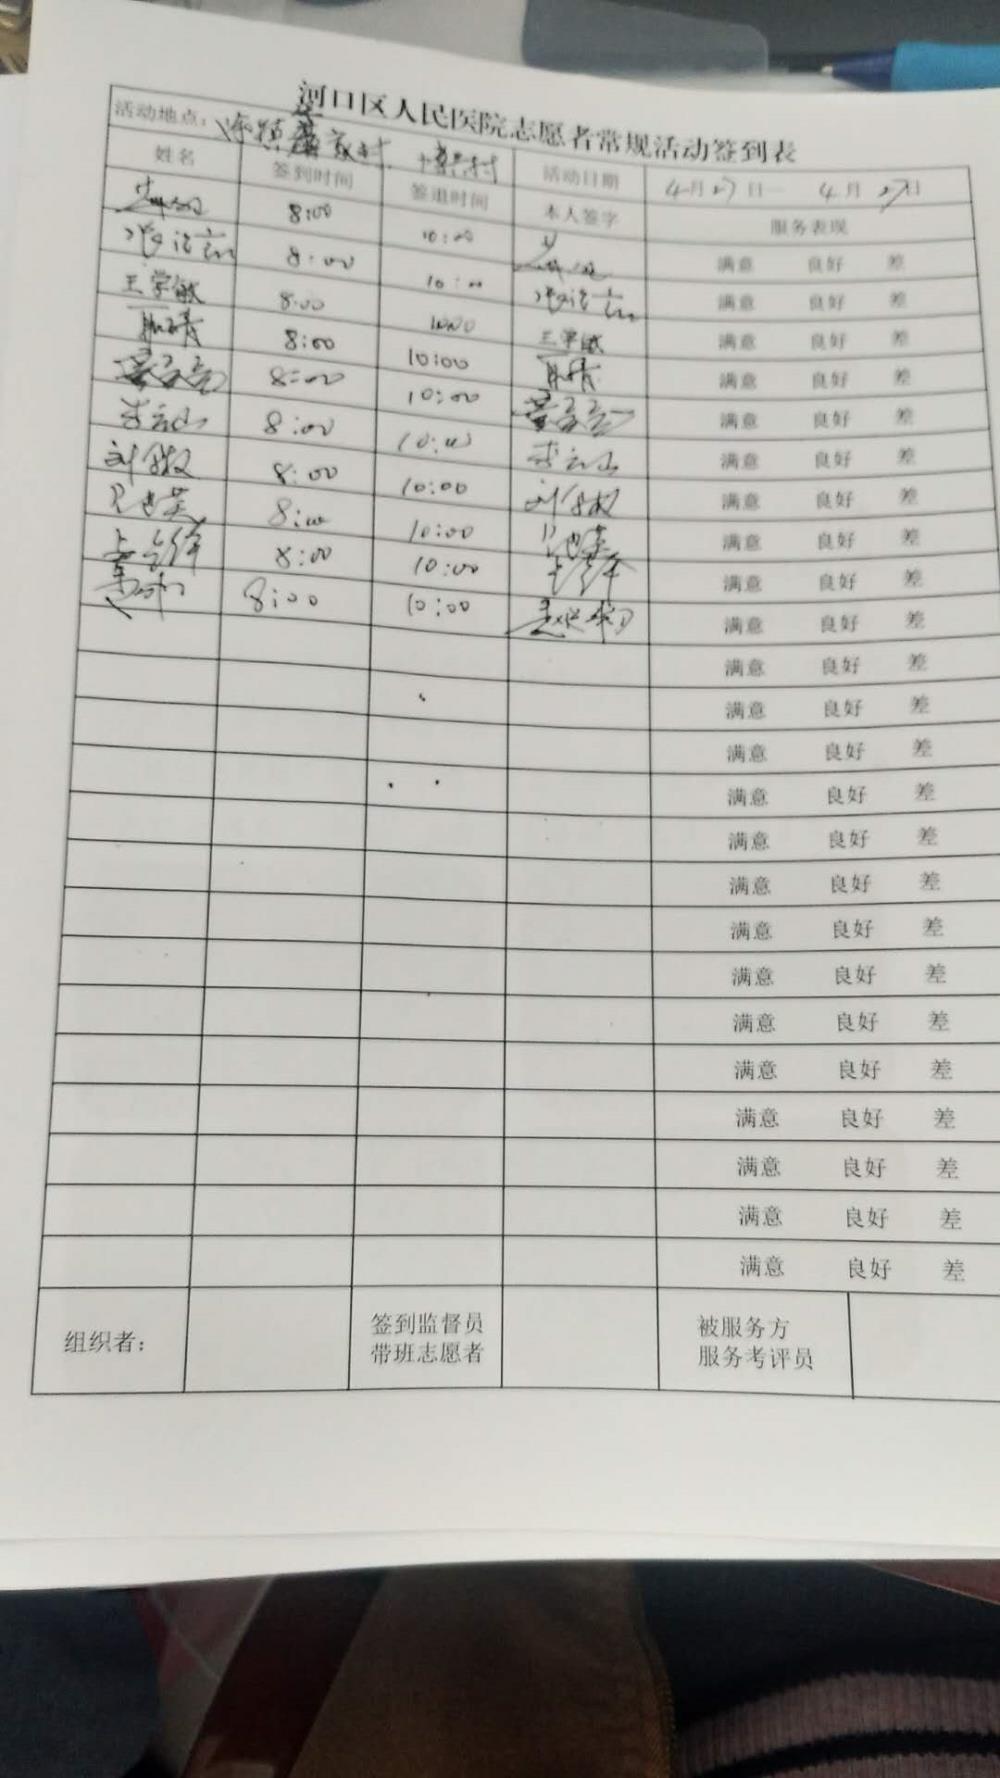 河口区人民医院志愿者常规活动签到表
活动地点: 活动日期 4月27日 4月27日
姓名 签到时间 签退时间 本人签字 服务表现
8:00 10:00 满意 良好 差
8:00 10:00 满意 良好 差
王学敏 8:00 10:00 王学敏 满意 良好 差
8:00 10:00 满意 良好 差
8:00 10:00 满意 良好 差
李云山 8:00 10:00 李云山 满意 良好 差
刘 8:00 10:00 刘 满意 良好 差
8:00 10:00 满意 良好 差
8:00 10:00 满意 良好 差
8:00 10:00 满意 良好 差
满意 良好 差
满意 良好 差
满意 良好 差
满意 良好 差
满意 良好 差
满意 良好 差
满意 良好 差
满意 良好 差
满意 良好 差
满意 良好 差
满意 良好 差
满意 良好 差
满意 良好 差
满意 良好 差
组织者: 签到监督员 被服务方
带班志愿者 服务考评员